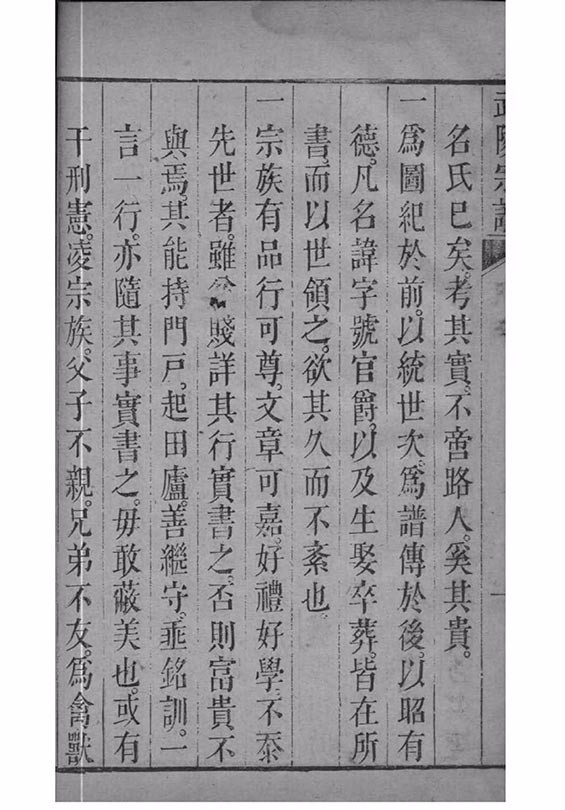 武陵宗譜
名氏巳矣。考其實。不啻路人。奚其貴。
一爲圖紀於前。以統世次。爲譜傳於後。以昭有
德。凡名諱字號官爵。以及生娶卒葬。皆在所
書。而以世領之。欲其久而不紊也。
一宗族有品行可尊。文章可嘉。好禮好學。不忝
先世者。雖 賤詳其行實書之。否則富貴不
與焉。其能持門戸。起田廬。善繼守。垂銘訓。一
言一行。亦隨其事實書之。毋敢蔽美也。或有
干刑憲。凌宗族。父子不親。兄弟不友。爲禽獸